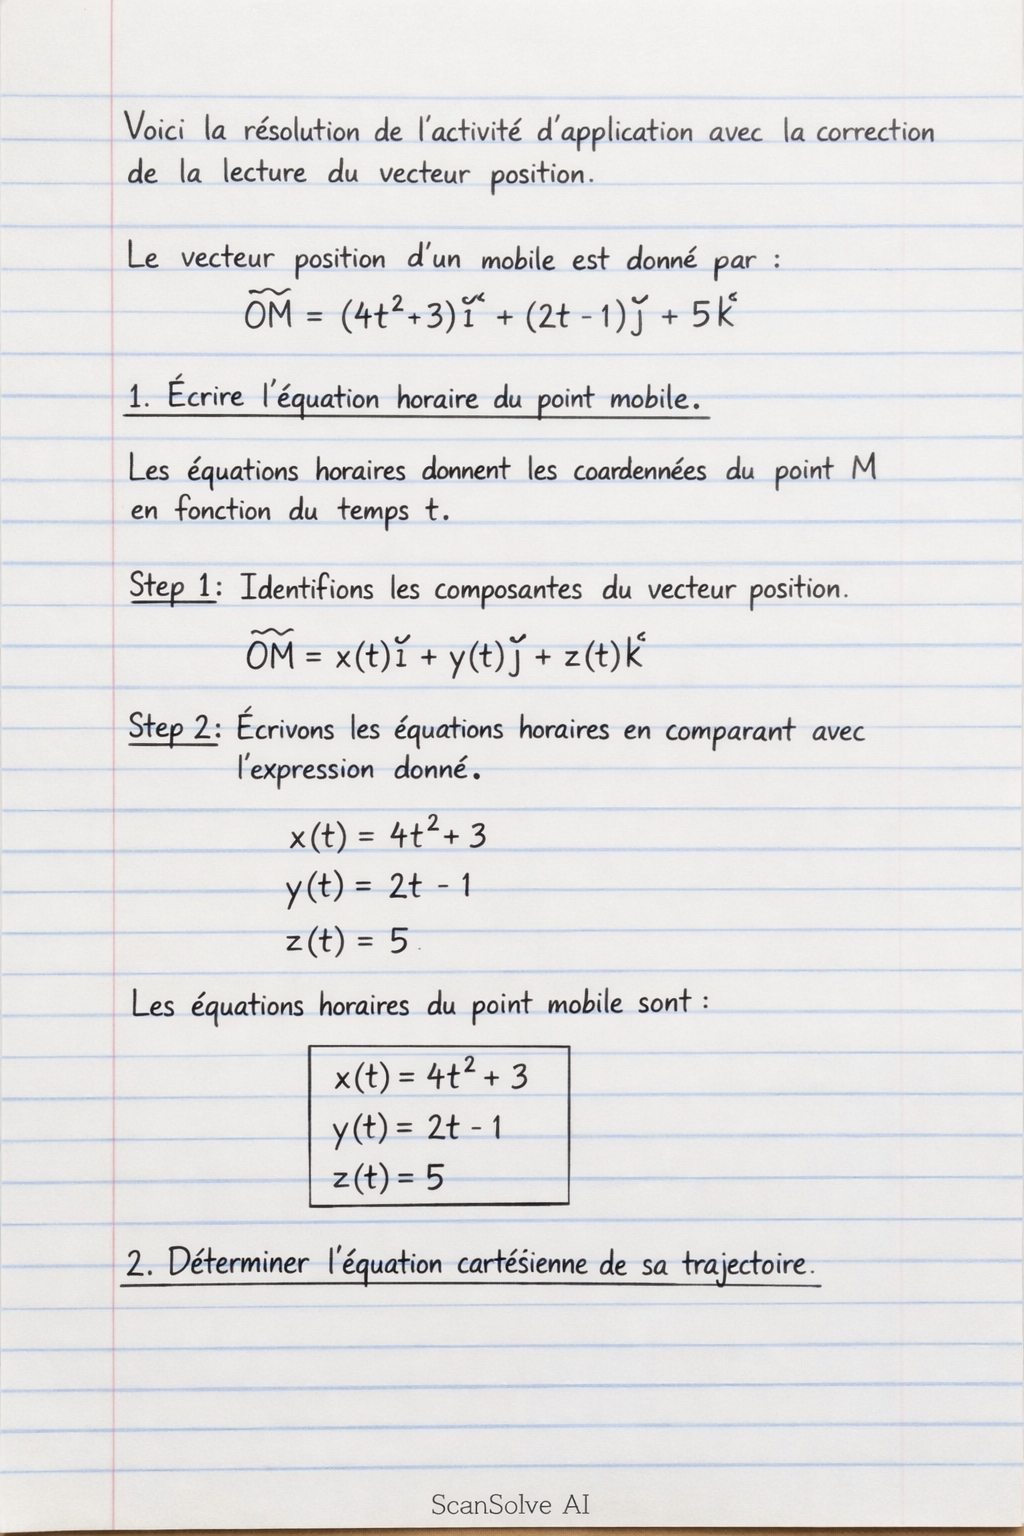 Voici la résolution de l'activité d'application avec la correction
de la lecture du vecteur position.
Le vecteur position d'un mobile est donné par :
OM = (4t²+3)i + (2t - 1)j + 5k
1. Écrire l'équation horaire du point mobile.
Les équations horaires donnent les coardennées du point M
en fonction du temps t.
Step 1: Identifions les composantes du vecteur position.
OM = x(t)i + y(t)j + z(t)k
Step 2: Écrivons les équations horaires en comparant avec
l'expression donné.
x(t) = 4t² + 3
y(t) = 2t - 1
z(t) = 5
Les équations horaires du point mobile sont :
x(t) = 4t² + 3
y(t) = 2t - 1
z(t) = 5
2. Déterminer l'équation cartésienne de sa trajectoire.
ScanSolve AI